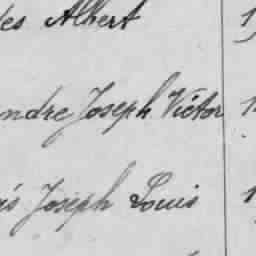 des Albert
ndre Joseph Victor
is Joseph Louis